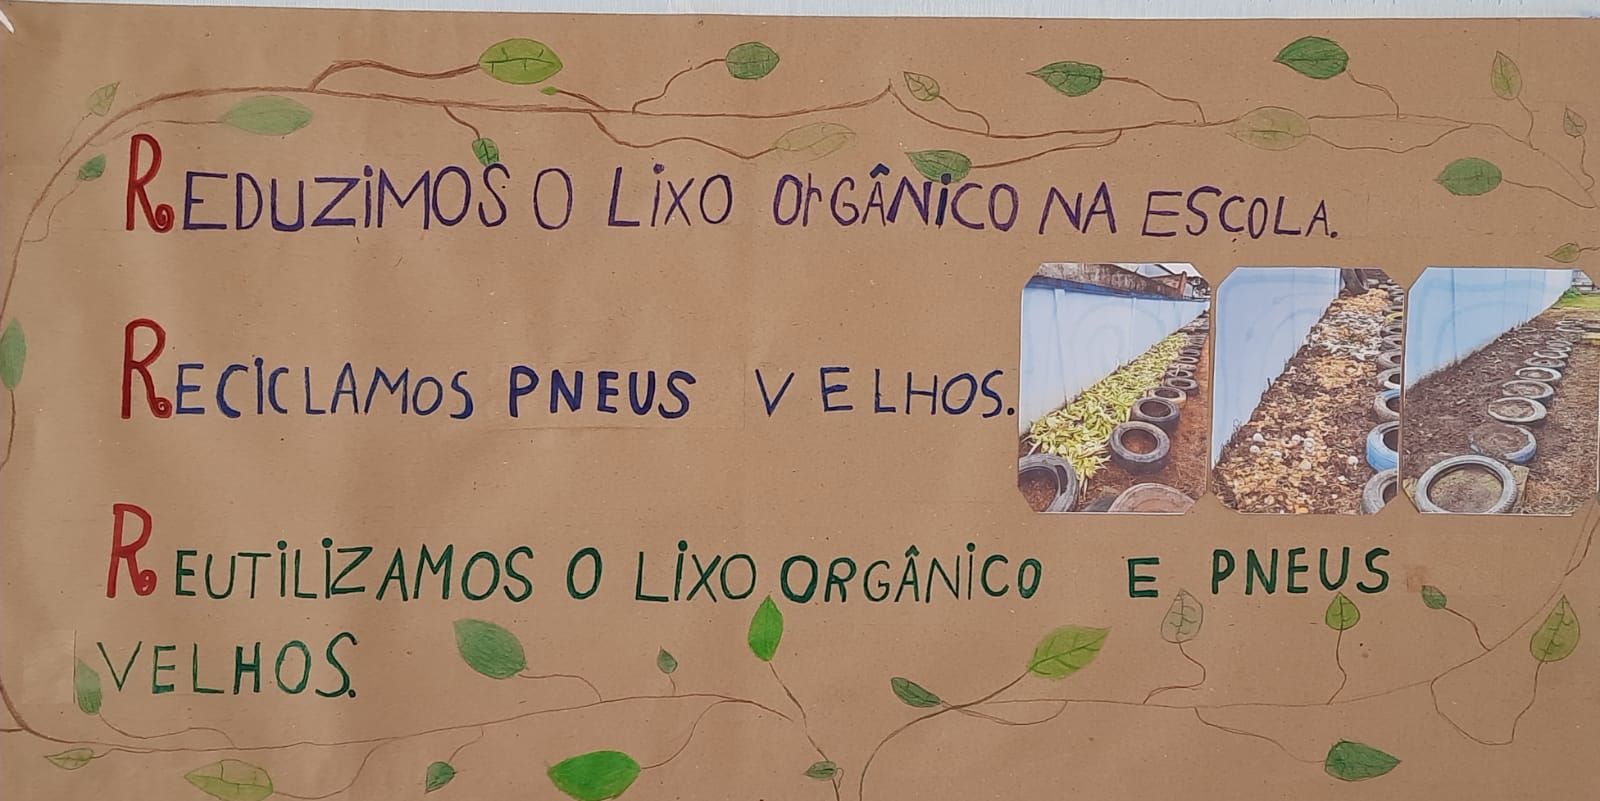 REDUZIMOS O LIXO ORGÂNICO NA ESCOLA.
RECICLAMOS PNEUS VELHOS.
REUTILIZAMOS O LIXO ORGÂNICO E PNEUS
VELHOS.